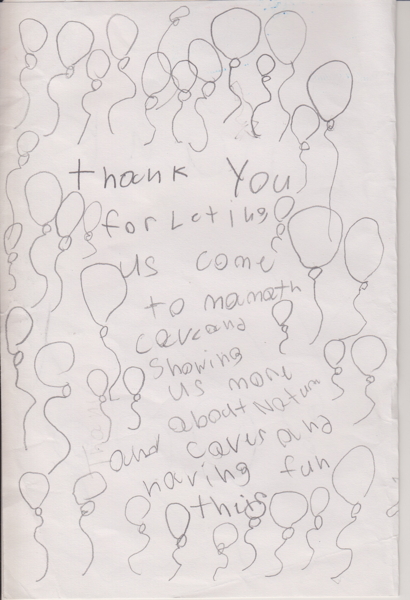 thank You
for Leting
us come
to mamoth
caveand
Showing
us more
about Naturn
and caver and
having fun
this